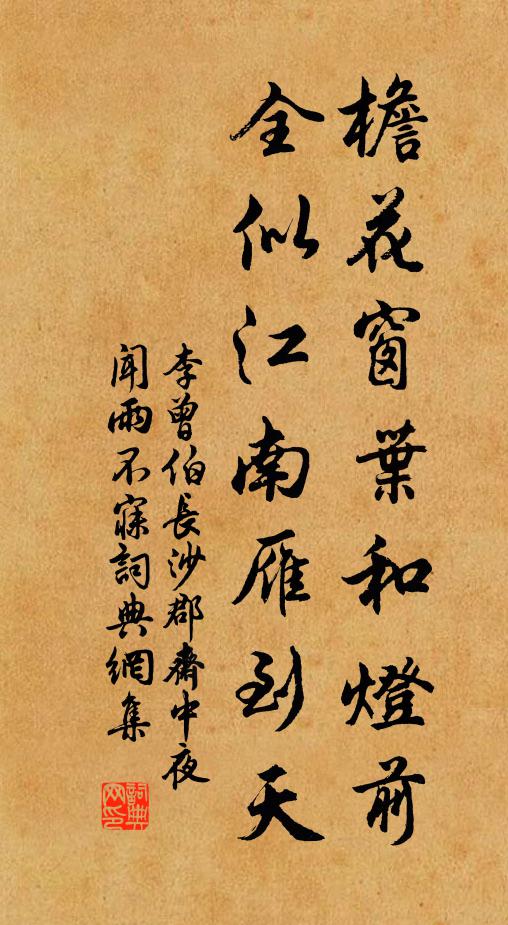 檐花窗葉和燈前
全似江南雁到天
李曾伯長沙郡齋中夜
聞雨不寐詞典網集
詞典网印